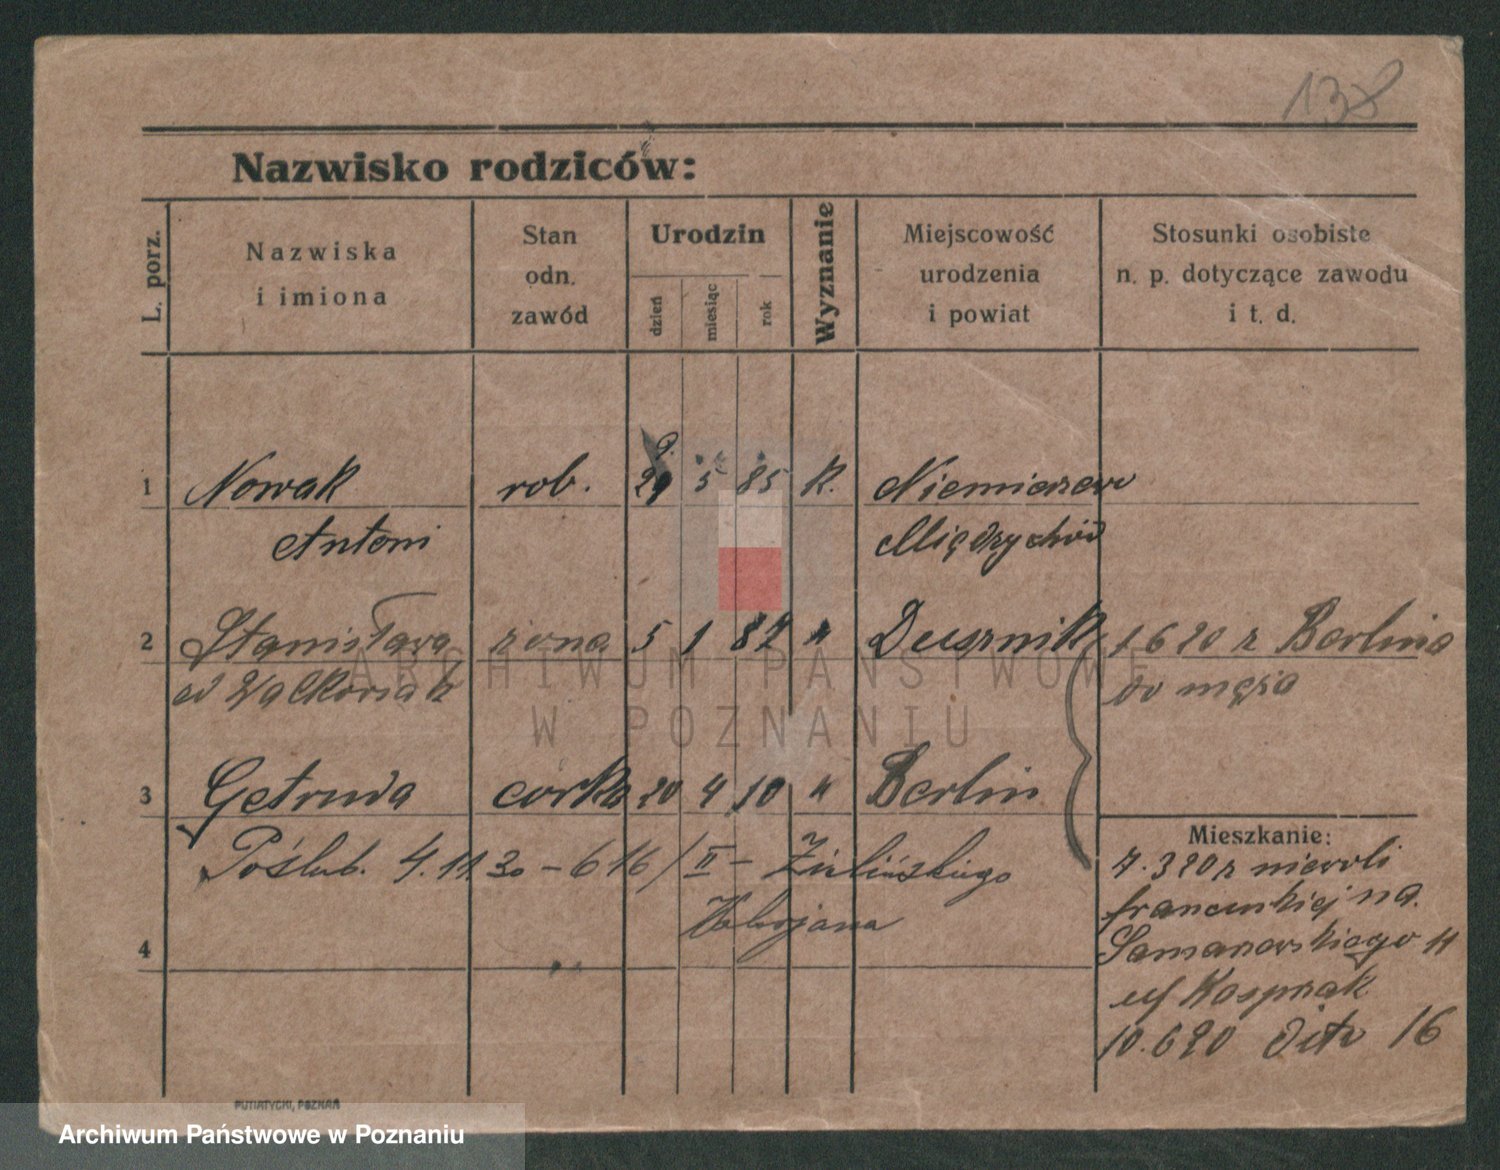 138
Nazwisko rodziców:
L. porz.
Nazwiska
i imiona
Stan
odn.
zawód
Urodzin
dzień
miesiąc
rok
Wyznanie
Miejscowość
urodzenia
i powiat
Stosunki osobiste
n. p. dotyczące zawodu
i t. d.
1 Nowak rob. 29 5 85 k. Niemierzewo
Antoni Międzychód
2 Stanisława żona 5 1 87 " Dusznik 1 6 20 z Berlina
do męża
3 Getruda corka 20 4 10 " Berlin
Poślub. 4.11.30 - 616/II - Zielińskiego
4
Mieszkanie:
7.3 20 z niewoli
francuskiej na
11
u/ Kasprzak
10.6 20 16
PUTIATYCKI, POZNAŃ
ARCHIWUM PAŃSTWOWE
W POZNANIU
Archiwum Państwowe w Poznaniu